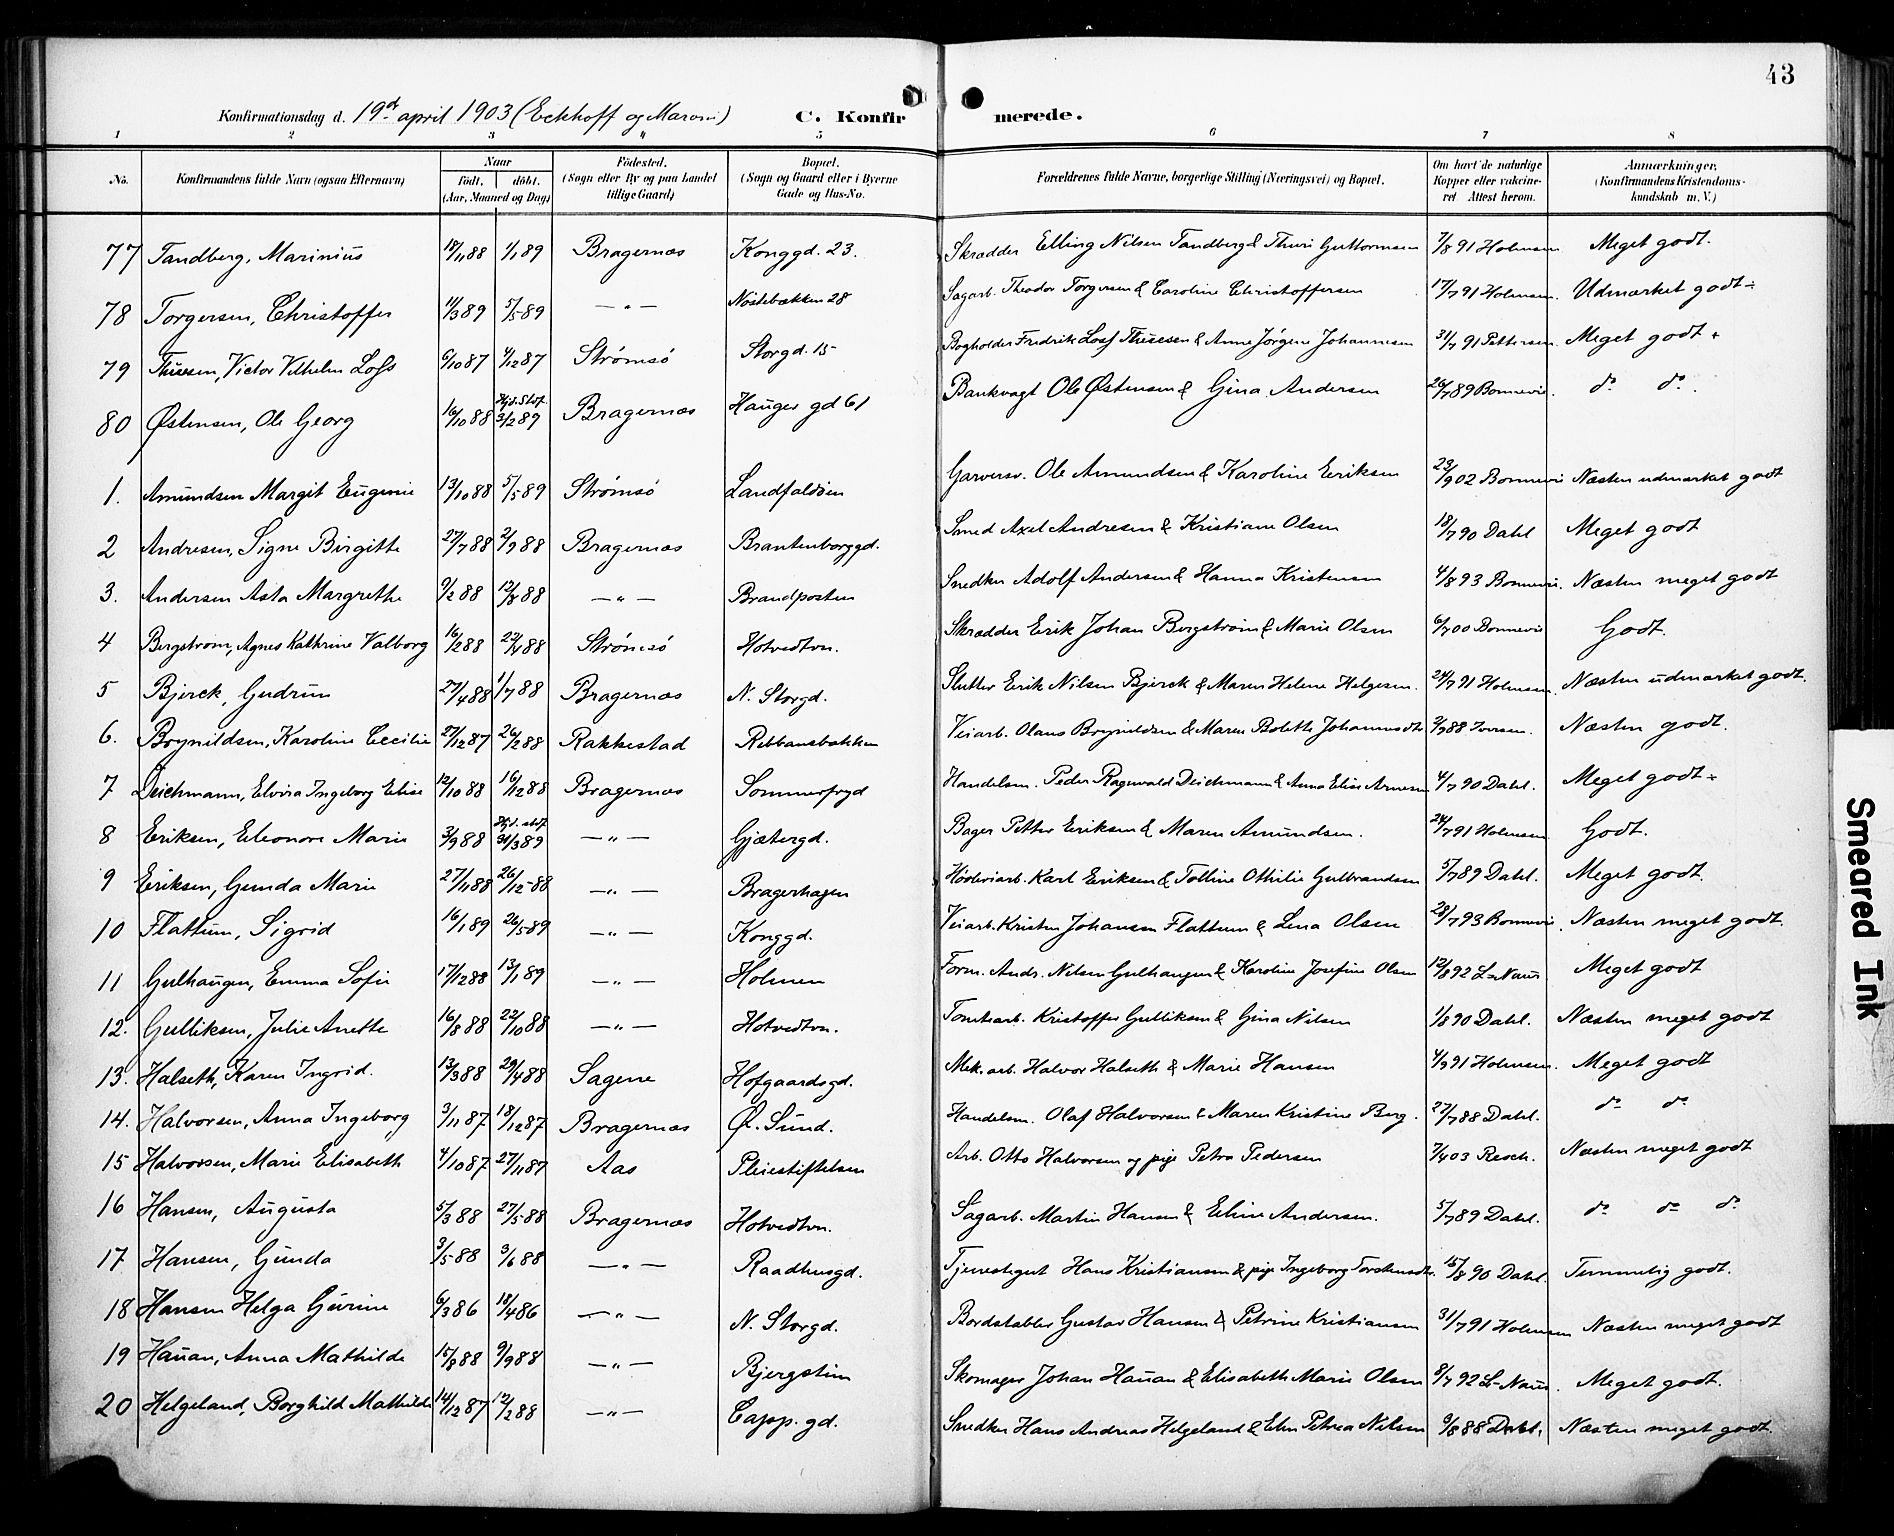 43
Konfirmationsdag d. 19de april 1903 (Eckhoff og Maroni) C. Konfirmerede.
1 2 3 4 5 6 7 8
No. Konfirmandens fulde Navn (ogsaa Efternavn) Naar født, døbt. (Aar, Maaned og Dag) Fødested. (Sogn eller By og paa Landet tillige Gaard) Bopæl. (Sogn og Gaard eller i Byerne Gade og Hus-No. Forældrenes fulde Navne, borgerlige Stilling (Næringsvei) og Bopæl. Om havt de naturlige Kopper eller vakcineret Attest herom. Anmærkninger, (Konfirmandens Kristendomskundskab m. V.)
77 Tandberg, Marinius 18/11 88 1/1 89 Bragernæs Konggd. 23. Skrædder Elling Nilsen Tandberg & Thuri Guttormsen 7/8 91 Holmsen Meget godt.
78 Torgersen, Christoffer 11/3 89 5/5 89 —"— Nøstebækken 28 Sagarb. Theodor Torgersen & Caroline Christoffersen 17/7 91 Holmsen. Udmærket godt
79 Thuesen, Victor Vilhelm Loss 6/10 87 4/12 87 Strømsø Storgd. 15 Bogholder Fredrik Loss Thuesen & Anne Jørgine Johannesen 31/7 91 Pettersen. Meget godt
80 Østensen, Ole Georg 16/10 88 Hjd. Stdf. 3/2 89 Bragernæs Hauges gd 61 Bankvagt Ole Østensen & Gina Andersen 26/7 89 Bonnevie. do do.
1. Amundsen Margit Eugenie 13/10 88 5/5 89 Strømsø Landfaldøien Garversv. Ole Amundsen & Karoline Eriksen 23/9 02 Bonnevie Næsten udmærket godt
2 Andresen, Signe Birgitte 27/7 88 2/9 88 Bragernæs Brantenborggd. Smed Axel Andresen & Kristiane Olsen 18/7 90 Dahl Meget godt
3. Andersen Asta Margrethe 9/2 88 12/8 88 —"— Brandposten Snedker Adolf Andersen & Hanna Kristensen 4/8 93 Bonnevie. Næsten meget godt
4 Bergstrøm, Agnes Kathrine Valborg 16/2 88 22/4 88 Strømsø Hotvedtvn. Skrædder Erik Johan Bergstrøm & Marie Olsen 6/7 00 Bonnevie Godt.
5 Bjerck, Gudrun 27/4 88 1/7 88 Bragernæs N. Storgd. Slutter Erik Nilsen Bjerck & Maren Helene Helgesen. 24/7 91 Holmsen. Næsten udmærket godt.
6. Brynildsen, Karoline Cecilie 27/12 87 26/2 88 Rakkestad Rebbansbakken Veiarb. Olaus Brynildsen & Maren Bolette Johannesdtr 2/9 88 Iversen. Næsten godt.
7 Deichmann, Elvira Ingeborg Elise 12/10 88 16/12 88 Bragernæs Sommerfryd Handelsm. Peder Ragnvald Deichmann & Anna Elise Arnesen 4/7 90 Dahl. Meget godt
8 Eriksen, Eleonore Marie 3/9 88 Hjd. stdf. 31/3 89 —"— Gjætergd. Bager Petter Eriksen & Maren Amundsen. 24/7 91 Holmsen Godt.
9 Eriksen, Gunda Marie 27/11 88 26/12 88 —"— Bragerhagen Karl Eriksen & Tolline Othilie Gulbrandsen 5/7 89 Dahl. Meget godt.
10 Flattum, Sigrid 16/1 89 26/5 89 —"— Konggd. Veiarb. Kristen Johansen Flattum & Lena Olsen 28/7 93 Bonnevie. Næsten meget godt.
11 Gulhaugen, Emma Sofie 17/12 88 13/1 89 —"— Holmen Form. Ands. Nilsen Gulhaugen & Karoline Josefine Olsen 12/8 92 L. Næss Meget godt
12. Gulliksen, Julie Anette 16/8 88 22/10 88 —"— Hotvedtvn. Tomtearb. Kristoffer Gulliksen & Gina Nilsen 1/8 90 Dahl. Næsten meget godt
13. Halseth, Karen Ingrid. 13/3 88 29/4 88 Sagene Hofgaardsgd. Mek. arb. Halvor Halseth & Marie Hansen 4/9 91 Holmsen. Meget godt
14. Halvorsen, Anna Ingeborg 3/11 87 18/12 87 Bragernæs Ø. Sund. Handelsm. Olaf Halvorsen & Maren Kristine Berg. 27/7 88 Dahl. do do
15 Halvorsen, Marie Elisabeth 4/10 87 27/11 87 Aas Pleiestiftelsen Arb. Otto Halvorsen og pige Petra Pedersen 7/4 03 Resch. Næsten meget godt
16 Hansen, Augusta 5/3 88 27/5 88 Bragernæs Hotvedtvn. Sagarb. Martin Hansen & Eline Andersen. 5/7 89 Dahl. do do do
17 Hansen, Gunda 3/5 88 3/6 88 —"— Raadhusgd. Tjenestegut Hans Kristiansen & pige Ingeborg Torstensdtr. 15/8 90 Dahl. Temmelig godt.
18 Hansen Helga Gurine 6/3 86 18/4 86 —"— N. Storgd. Bordstabler Gustav Hansen & Petrine Kristiansen 31/7 91 Holmsen Næsten meget godt
19 Hauan, Anna Mathilde 15/8 88 9/9 88 —"— Bjergstien Skomager Johan Hauan & Elisabeth Marie Olsen 8/7 92 L. Næss. Meget godt.
20 Helgeland, Borghild Mathilde 14/12 87 12/2 88 —"— Capp. gd. Snedker Hans Andreas Helgeland & Elen Petrea Nilsen 3/8 88 Dahl. Næsten meget godt.
Smeared Ink